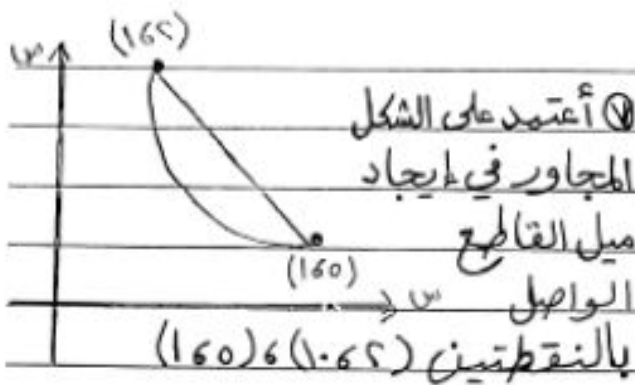 (١،٢)
ص
٧ أعتمد على الشكل
المجاور في إيجاد
ميل القاطع
(١،٥)
الواصل
س
بالنقطتين (١٠،٢)،(١،٥)